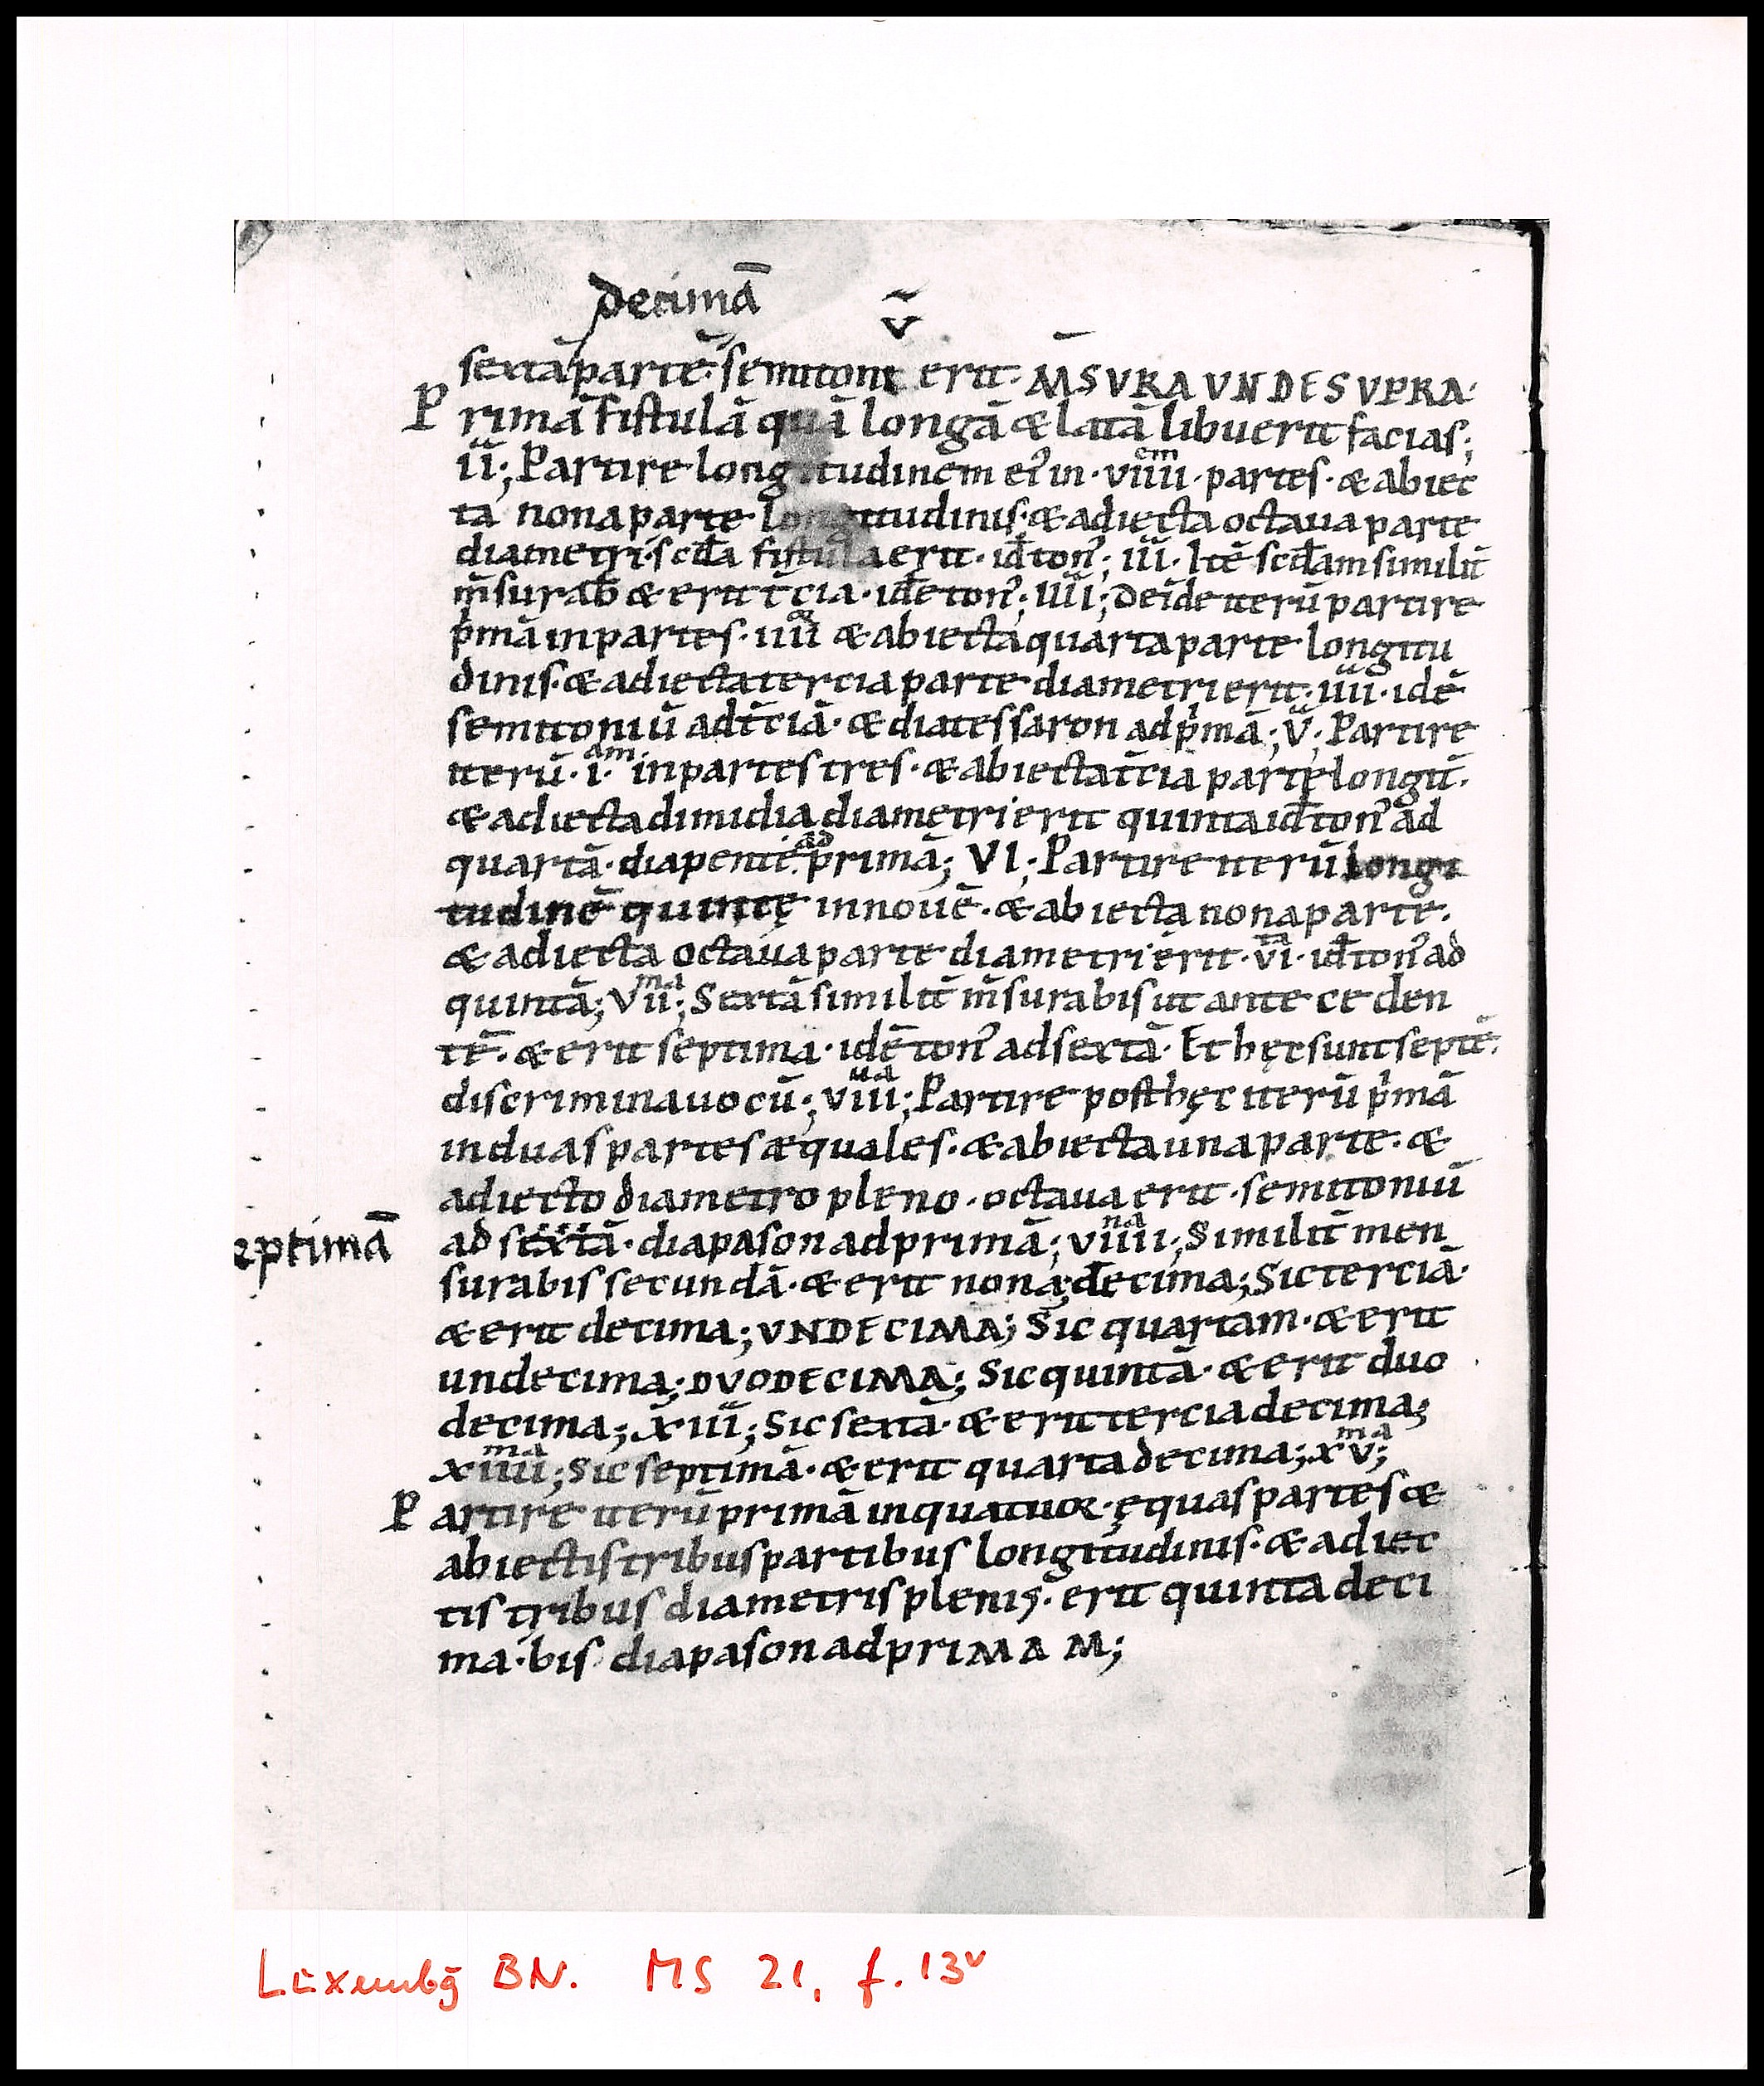 decimā
v̄
sextā partē. semitoni erit. M̄SVRA VNDE SVPRA.
Primā fistulā quā longā & latā libuerit facias;
ii; Partire longitudinem ei᾽ in · viiii · partes · & abiec
ta nona parte longitudinis · & adiecta octaua parte
diametri · scd̄a fistula erit · id̄ ton᾽; iii · Itē scd̄am similit̄
m̄surab̄ & erit t̄cia · idē ton᾽; IIII; Deīde iterū partire
p̄mā in partes · iiii & abiecta quarta parte longitu
dinis · & adiecta tercia parte diametri erit · iiii · idē
semitoniū ad t̄ciā · & diatessaron ad p̄mā; V; Partire
iterū · i · am in partes tres · & abiecta t̄cia parte longit̄ ·
& adiecta dimidia diametri erit quinta id̄ ton᾽ ad
quartā · diapente ad primā; VI; Partire iterū longi
tudinē quintę in nouē · & abiecta nona parte ·
& adiecta octaua parte diametri erit · vi ta · id̄ ton᾽ ad
quintā; Vii ma; Sextā similit̄ m̄surabis ut ante ceden
tē · & erit septima · idē ton᾽ ad sextā · Et hęc sunt septē
discrimina uocū; viii ua; Partire post hęc iterū p̄mā
in duas partes æquales · & abiecta una parte · &
adiecto diametro pleno · octaua erit · semitoniū
eptimā
ad sextā · diapason ad primā; viiii na; Similit̄ men
surabis secundā · & erit nona; decima; Sic terciā ·
& erit decima; VNDECIMA; Sic quartam · & erit
undecima; DVODECIMA; Sic quintā · & erit duo
decima; xiii; Sic sextā · & erit tercia decima;
xiiii ma; Sic septimā · & erit quarta decima; xv ma;
Partire iterū primā in quatuor ęquas partes &
abiectis tribus partibus longitudinis · & adiec
tis tribus diametris plenis · erit quinta deci
ma · bis diapason ad priMAM;
Luxembg̅ BN. MS 21, f. 13v